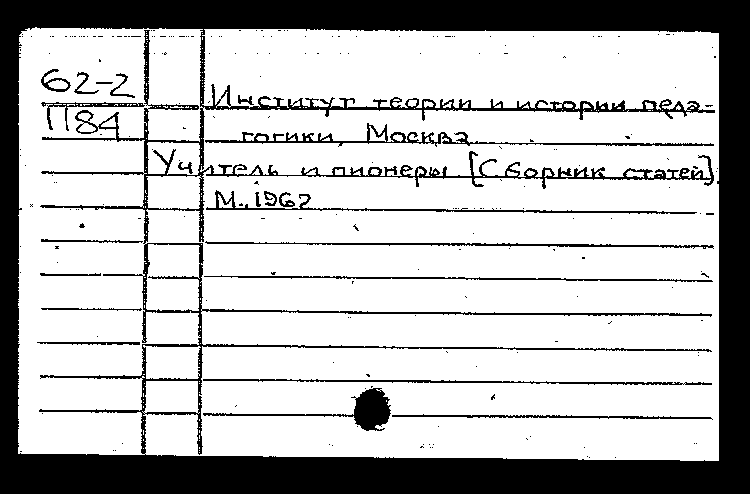 62-2
1184
Институт теории и истории педа-
гогики, Москва
Учитель и пионеры [Сборник статей].
М., 1962